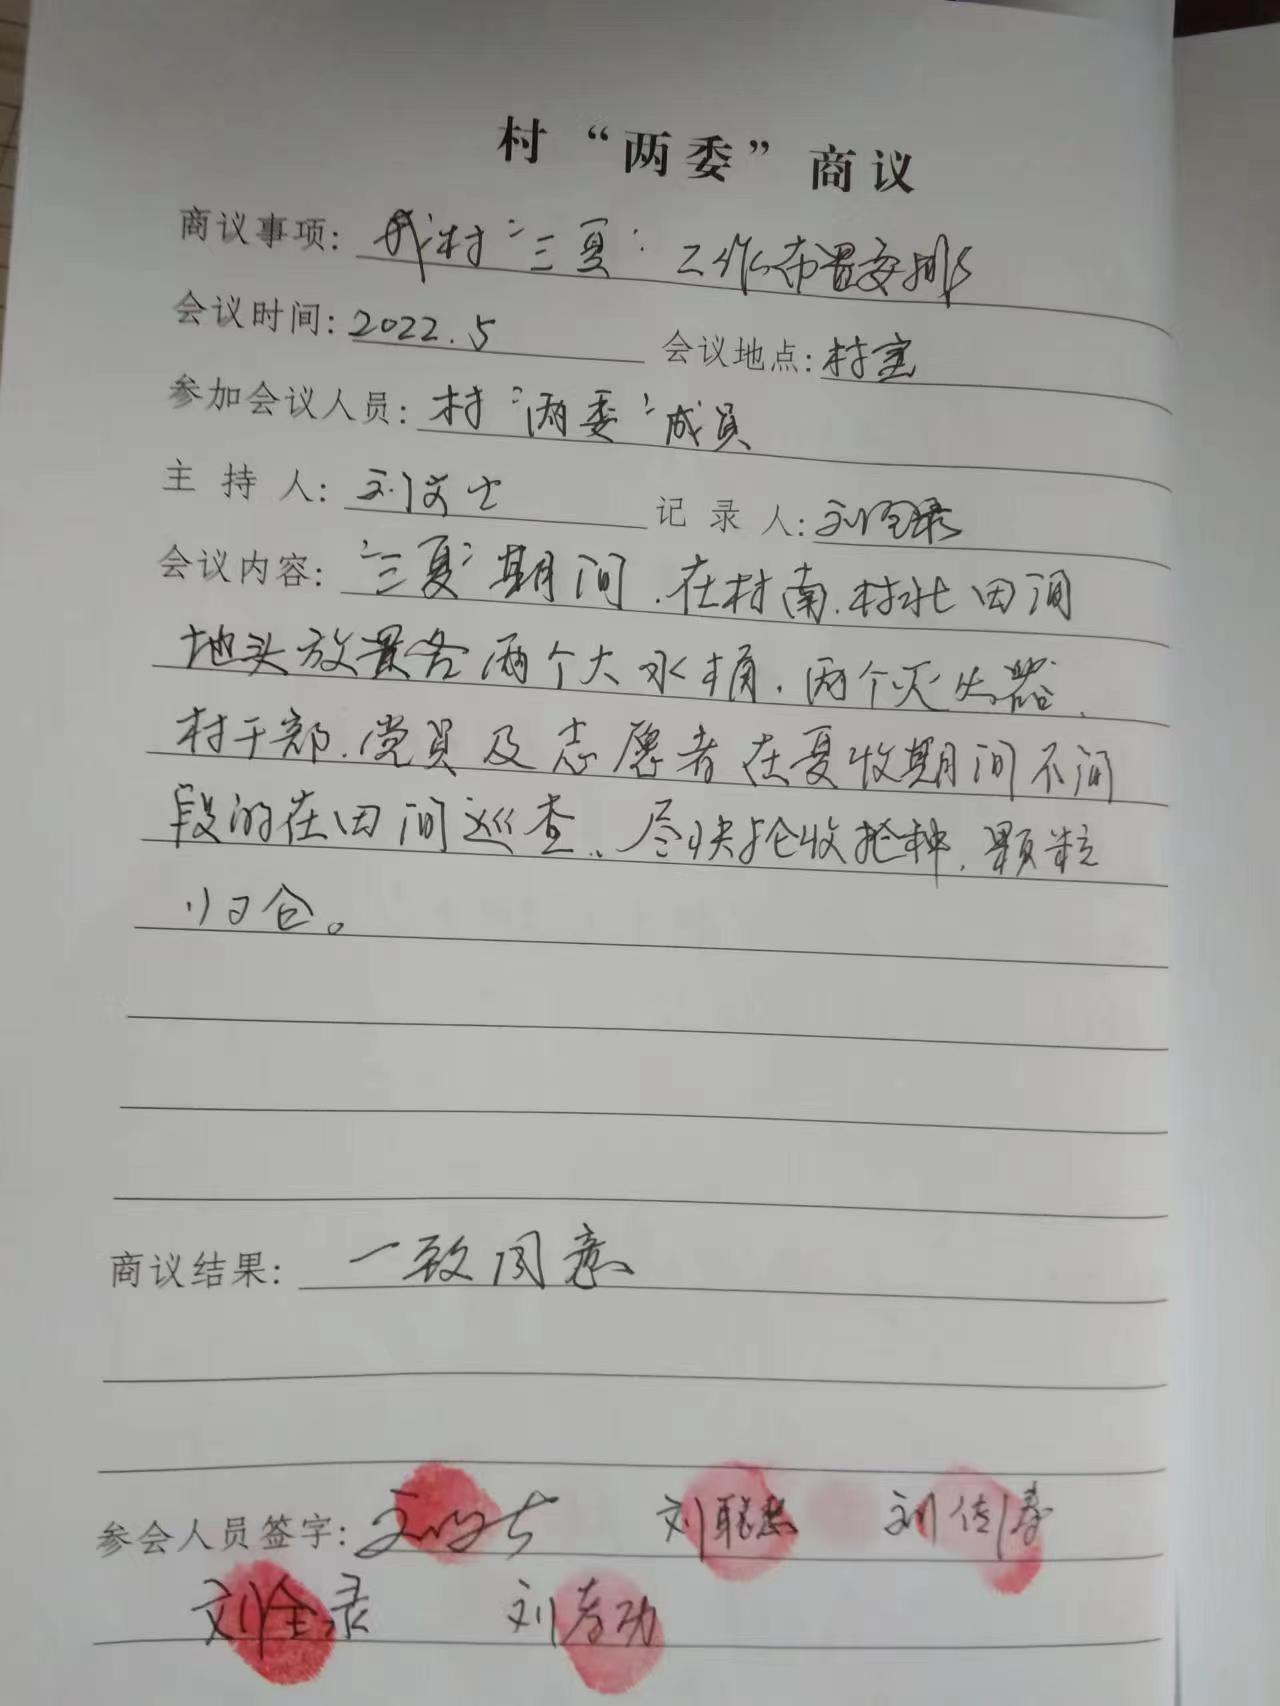 村“两委”商议
商议事项：我村“三夏”工作布置安排
会议时间：2022.5 会议地点：村室
参加会议人员：村“两委”成员
主持人：刘文士 记录人：刘全录
会议内容：“三夏”期间，在村南、村北田间
地头放置各两个大水桶，两个灭火器、
村干部、党员及志愿者在夏收期间不间
段的在田间巡查、尽快抢收抢种，颗粒
归仓。
商议结果：一致同意
参会人员签字：刘文士 刘联 刘传
刘全录 刘孝功